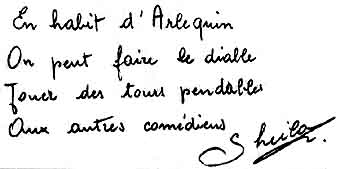 En habit d'Arlequin
On peut faire le diable
Jouer des tours pendables
Aux autres comédiens
Sheila.